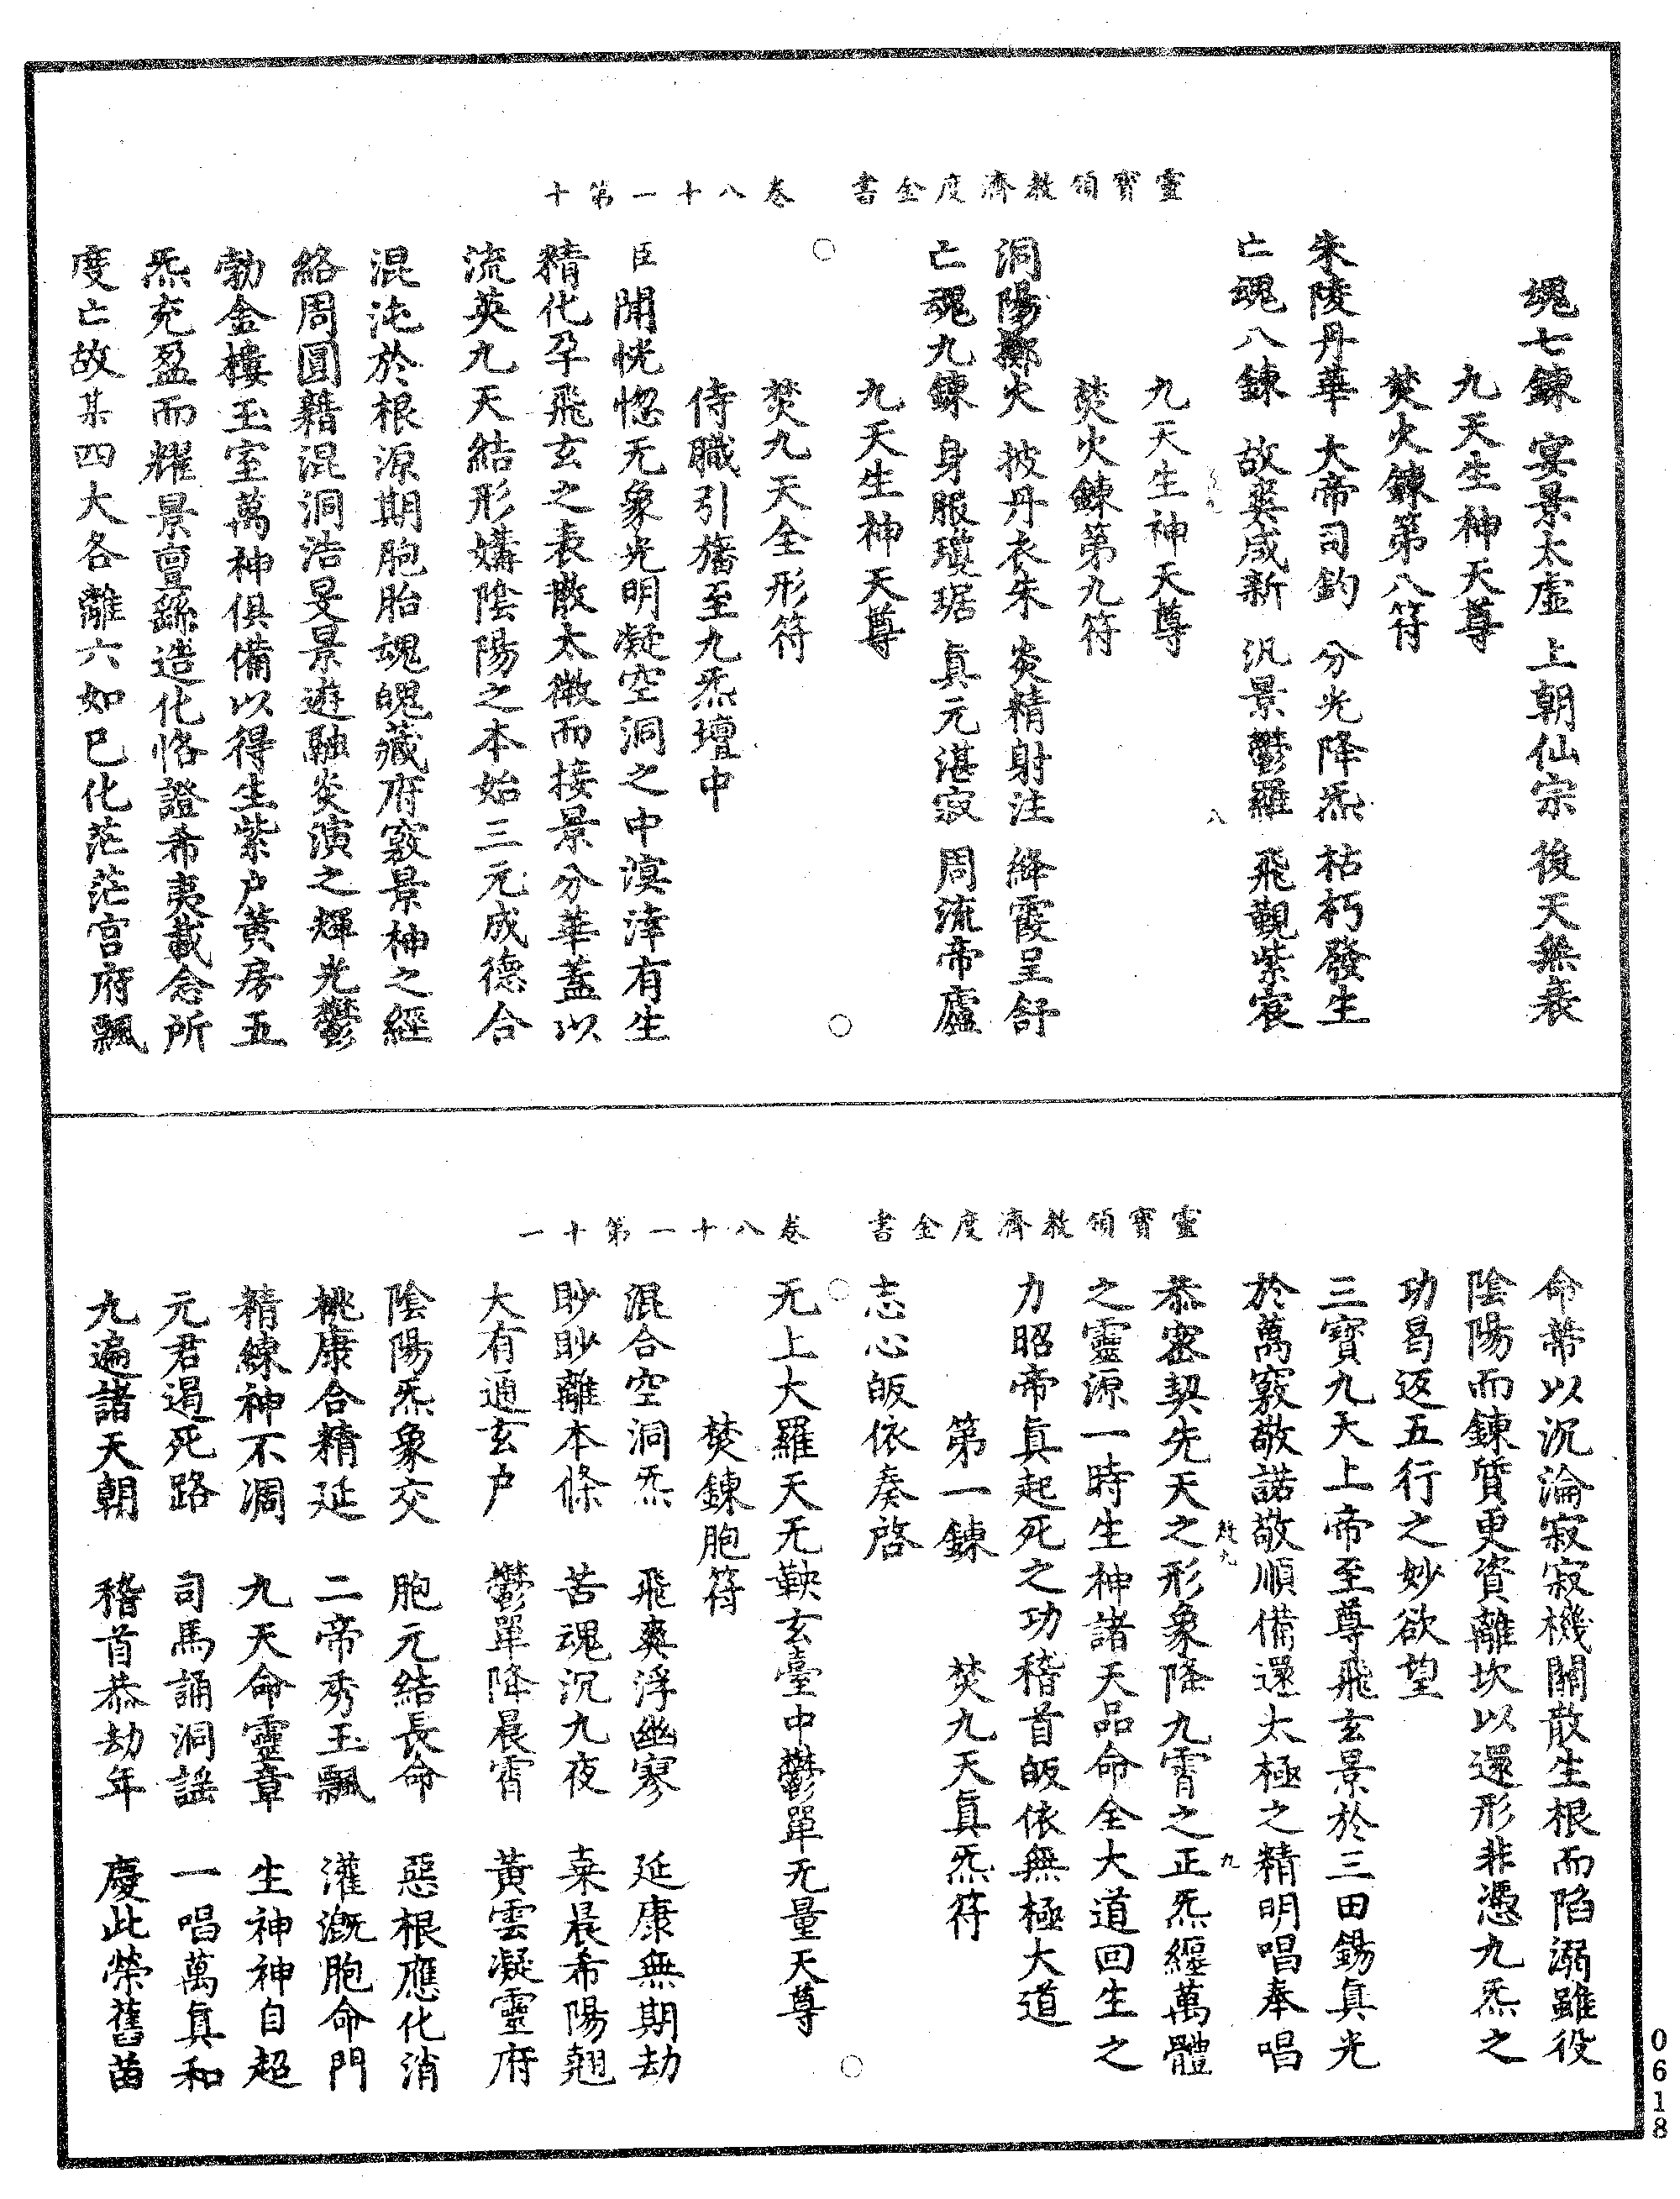 靈寶領教濟度金書　卷八十一第十
魂七鍊　宴景太虛　上朝仙宗　後天無衰
九天生神天尊
焚火鍊第八符
朱陵丹華　大帝司鈞　分光降炁　枯朽發生
亡魂八鍊　故爽成新　汎景鬱羅　飛觀紫宸
八
九天生神天尊
焚火鍊第九符
洞陽擲火　披丹衣朱　炎精射注　絳霞呈舒
亡魂九鍊　身服瓊琚　眞元湛寂　周流帝廬
九天生神天尊
○　○
焚九天全形符
侍職引旛至九炁壇中
臣聞恍惚无象光明凝空洞之中溟涬有生
精化孕飛玄之表散太微而接景分華蓋以
流英九天結形媾陰陽之本始三元成德合
混沌於根源期胞胎魂魄藏府竅景神之經
絡周圓藉混洞浩旻景遊融炎演之輝光鬱
勃金樓玉室萬神俱備以得生紫户黄房五
炁充盈而耀景亶繇造化恪證希夷載念所
度亡故某四大各離六如已化茫茫宫府飄
靈寶領教濟度金書　卷八十一第十一
命蒂以沉淪寂寂機關散生根而陷溺雖役
陰陽而鍊質更資離坎以還形非憑九炁之
功曷返五行之妙欲望
三寶九天上帝至尊飛玄景於三田錫眞光
於萬竅敬諾敬順備還太極之精明唱奉唱
敢九　九
恭密契先天之形象降九霄之正炁纏萬體
之靈源一時生神諸天品命全大道回生之
力昭帝眞起死之功稽首皈依無極大道
第一鍊　焚九天眞炁符
志心皈依奏啓
○　○
无上大羅天无鞅玄臺中鬱單无量天尊
焚鍊胞符
混合空洞炁　飛爽浮幽寥　延康無期劫
眇眇離本條　苦魂沉九夜　椉晨希陽翹
大有通玄户　鬱單降晨霄　黄雲凝靈府
陰陽炁象交　胞元結長命　惡根應化消
桃康合精延　二帝秀玉飄　灌溉胞命門
精練神不凋　九天命靈章　生神神自超
元君遏死路　司馬誦洞謡　一唱萬眞和
九遍諸天朝　稽首恭劫年　慶此榮舊苗
0618